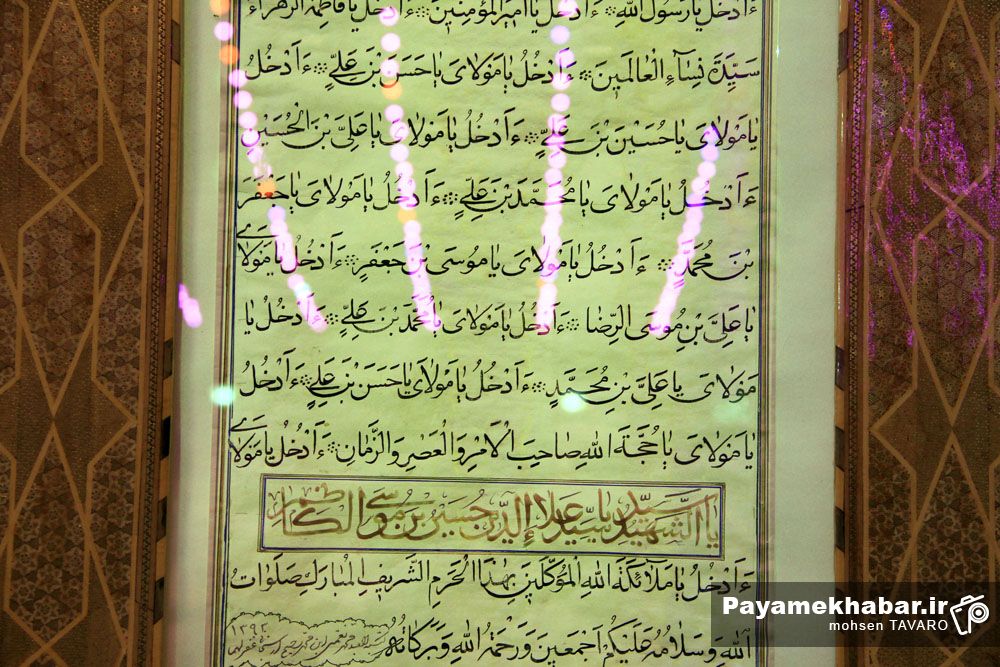 ءَاَدْخُلُ یٰا رَسُولَ اللهِ ءَاَدْخُلُ یٰا اَمیرَ الْمُؤْمِنینَ ءَاَدْخُلُ یٰا فٰاطِمَةُ الزَّهْرٰاءُ
سَیِّدَةَ نِسٰآءِ الْعٰالَمینَ ءَاَدْخُلُ یٰا مَوْلٰایَ یٰا حَسَنَ بْنَ عَلِیٍّ ءَاَدْخُلُ
یٰا مَوْلٰایَ یٰا حُسَیْنَ بْنَ عَلِیٍّ ءَاَدْخُلُ یٰا مَوْلٰایَ یٰا عَلِیَّ بْنَ الْحُسَیْنِ
ءَاَدْخُلُ یٰا مَوْلٰایَ یٰا مُحَمَّدَ بْنَ عَلِیٍّ ءَاَدْخُلُ یٰا مَوْلٰایَ یٰا جَعْفَرَ
بْنَ مُحَمَّدٍ ءَاَدْخُلُ یٰا مَوْلٰایَ یٰا مُوسَی بْنَ جَعْفَرٍ ءَاَدْخُلُ یٰا مَوْلٰایَ
یٰا عَلِیَّ بْنَ مُوسَی الرِّضٰا ءَاَدْخُلُ یٰا مَوْلٰایَ یٰا مُحَمَّدَ بْنَ عَلِیٍّ ءَاَدْخُلُ یٰا
مَوْلٰایَ یٰا عَلِیَّ بْنَ مُحَمَّدٍ ءَاَدْخُلُ یٰا مَوْلٰایَ یٰا حَسَنَ بْنَ عَلِیٍّ ءَاَدْخُلُ
یٰا مَوْلٰایَ یٰا حُجَّةَ اللهِ صٰاحِبَ الْاَمْرِ وَ الْعَصْرِ وَ الزَّمٰانِ ءَاَدْخُلُ یٰا مَوْلٰایَ
یٰا سَیِّدَ الشَّهیدِ یٰا سَیِّدَ عَلٰاءِ الدّینِ حُسَیْنِ بْنِ مُوسَی الْکٰاظِمِ
ءَاَدْخُلُ یٰا مَلٰآئِکَةَ اللهِ الْمُوَکَّلینَ بِهٰذَا الْحَرَمِ الشَّریفِ الْمُبٰارَکِ صَلَوٰاتُ
اللهِ وَ سَلٰامُهُ عَلَیْکُمْ اَجْمَعینَ وَ رَحْمَةُ اللهِ وَ بَرَکٰاتُهُ
۱۳۹۲
Payamekhabar.ir
mohsen TAVARO